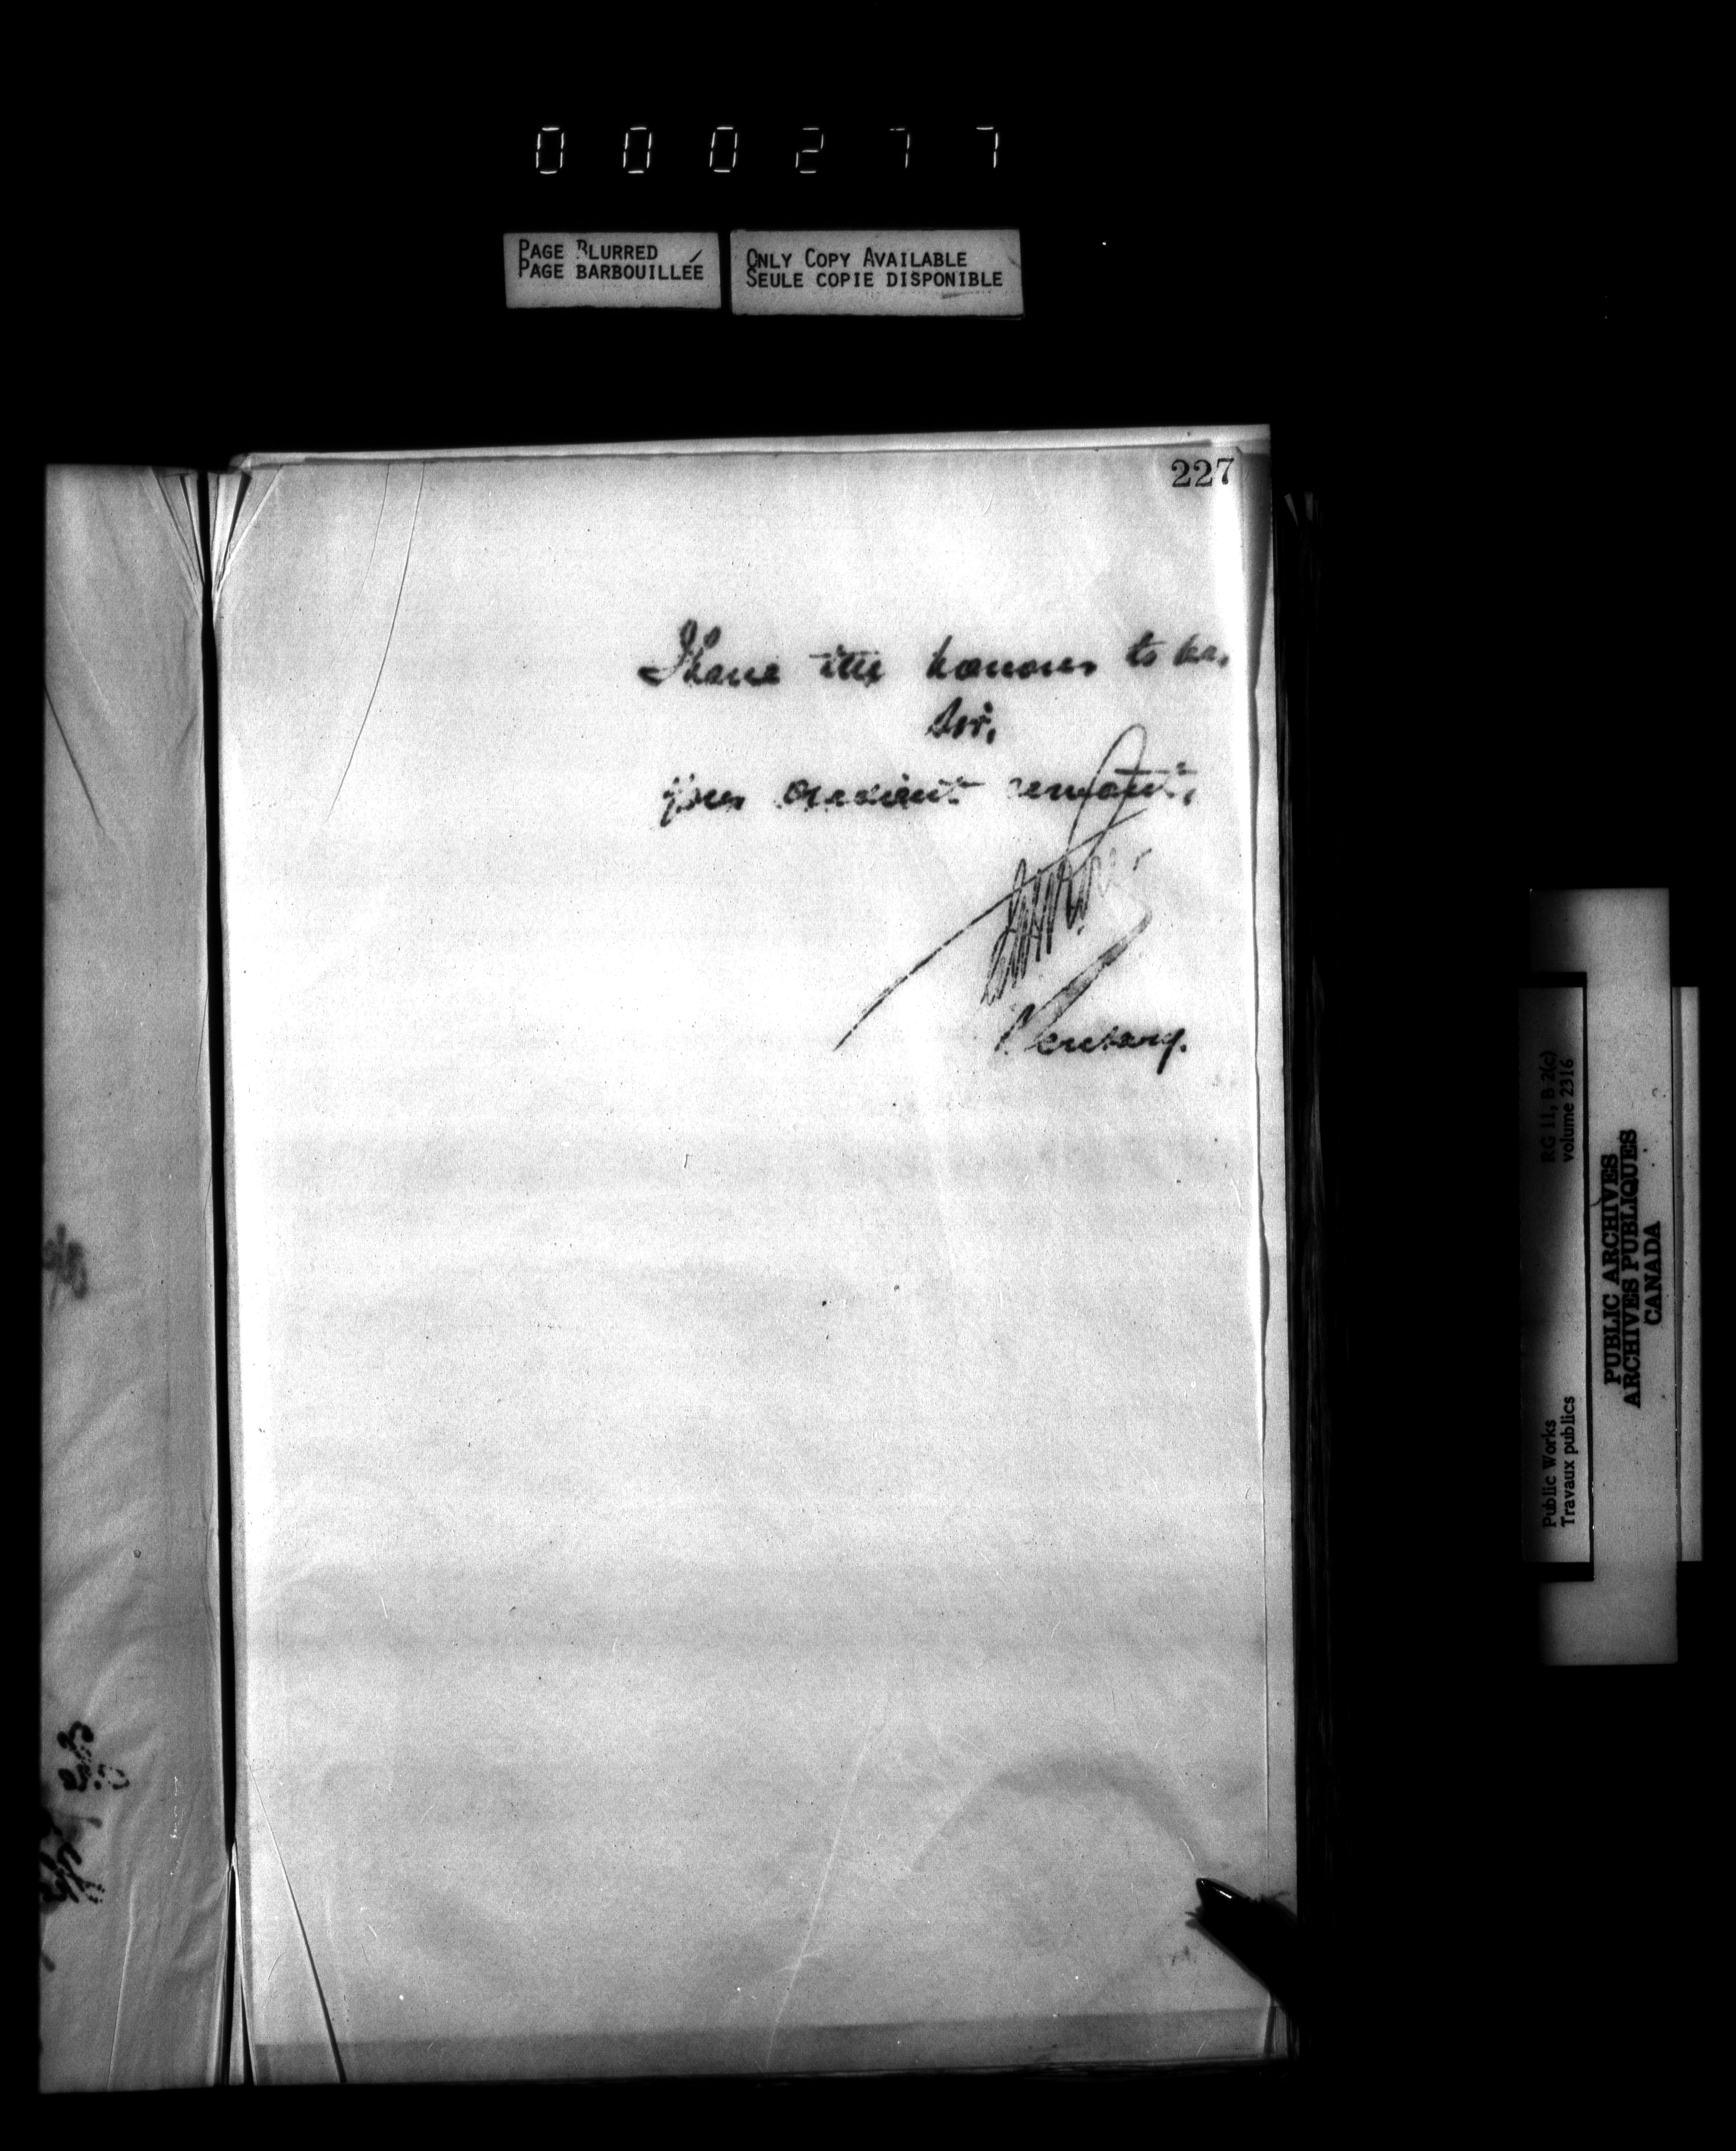 000277
PAGE BLURRED
PAGE BARBOUILLÉE
ONLY COPY AVAILABLE
SEULE COPIE DISPONIBLE
227
I have the honour to be,
Sir,
your obedient servant,
Secretary.
Public Works
Travaux publics
RG 11, B 2(c)
volume 2316
PUBLIC ARCHIVES
ARCHIVES PUBLIQUES
CANADA